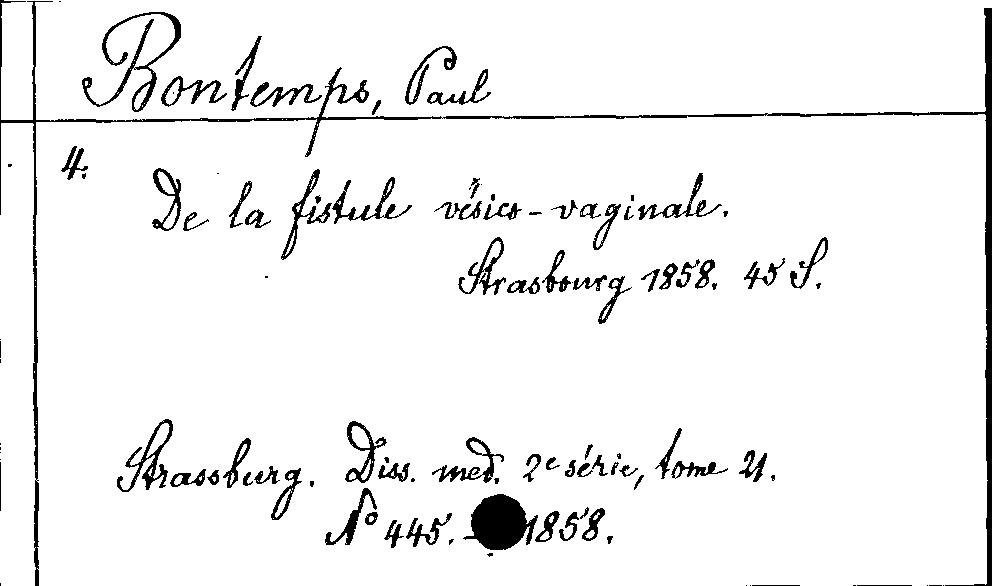 Bontemps, Paul
4.
De la fistule vésico-vaginale.
Strasbourg 1858. 45 S.
Strassburg. Diss. med. 2e série, tome 21.
No 445. - 1858.